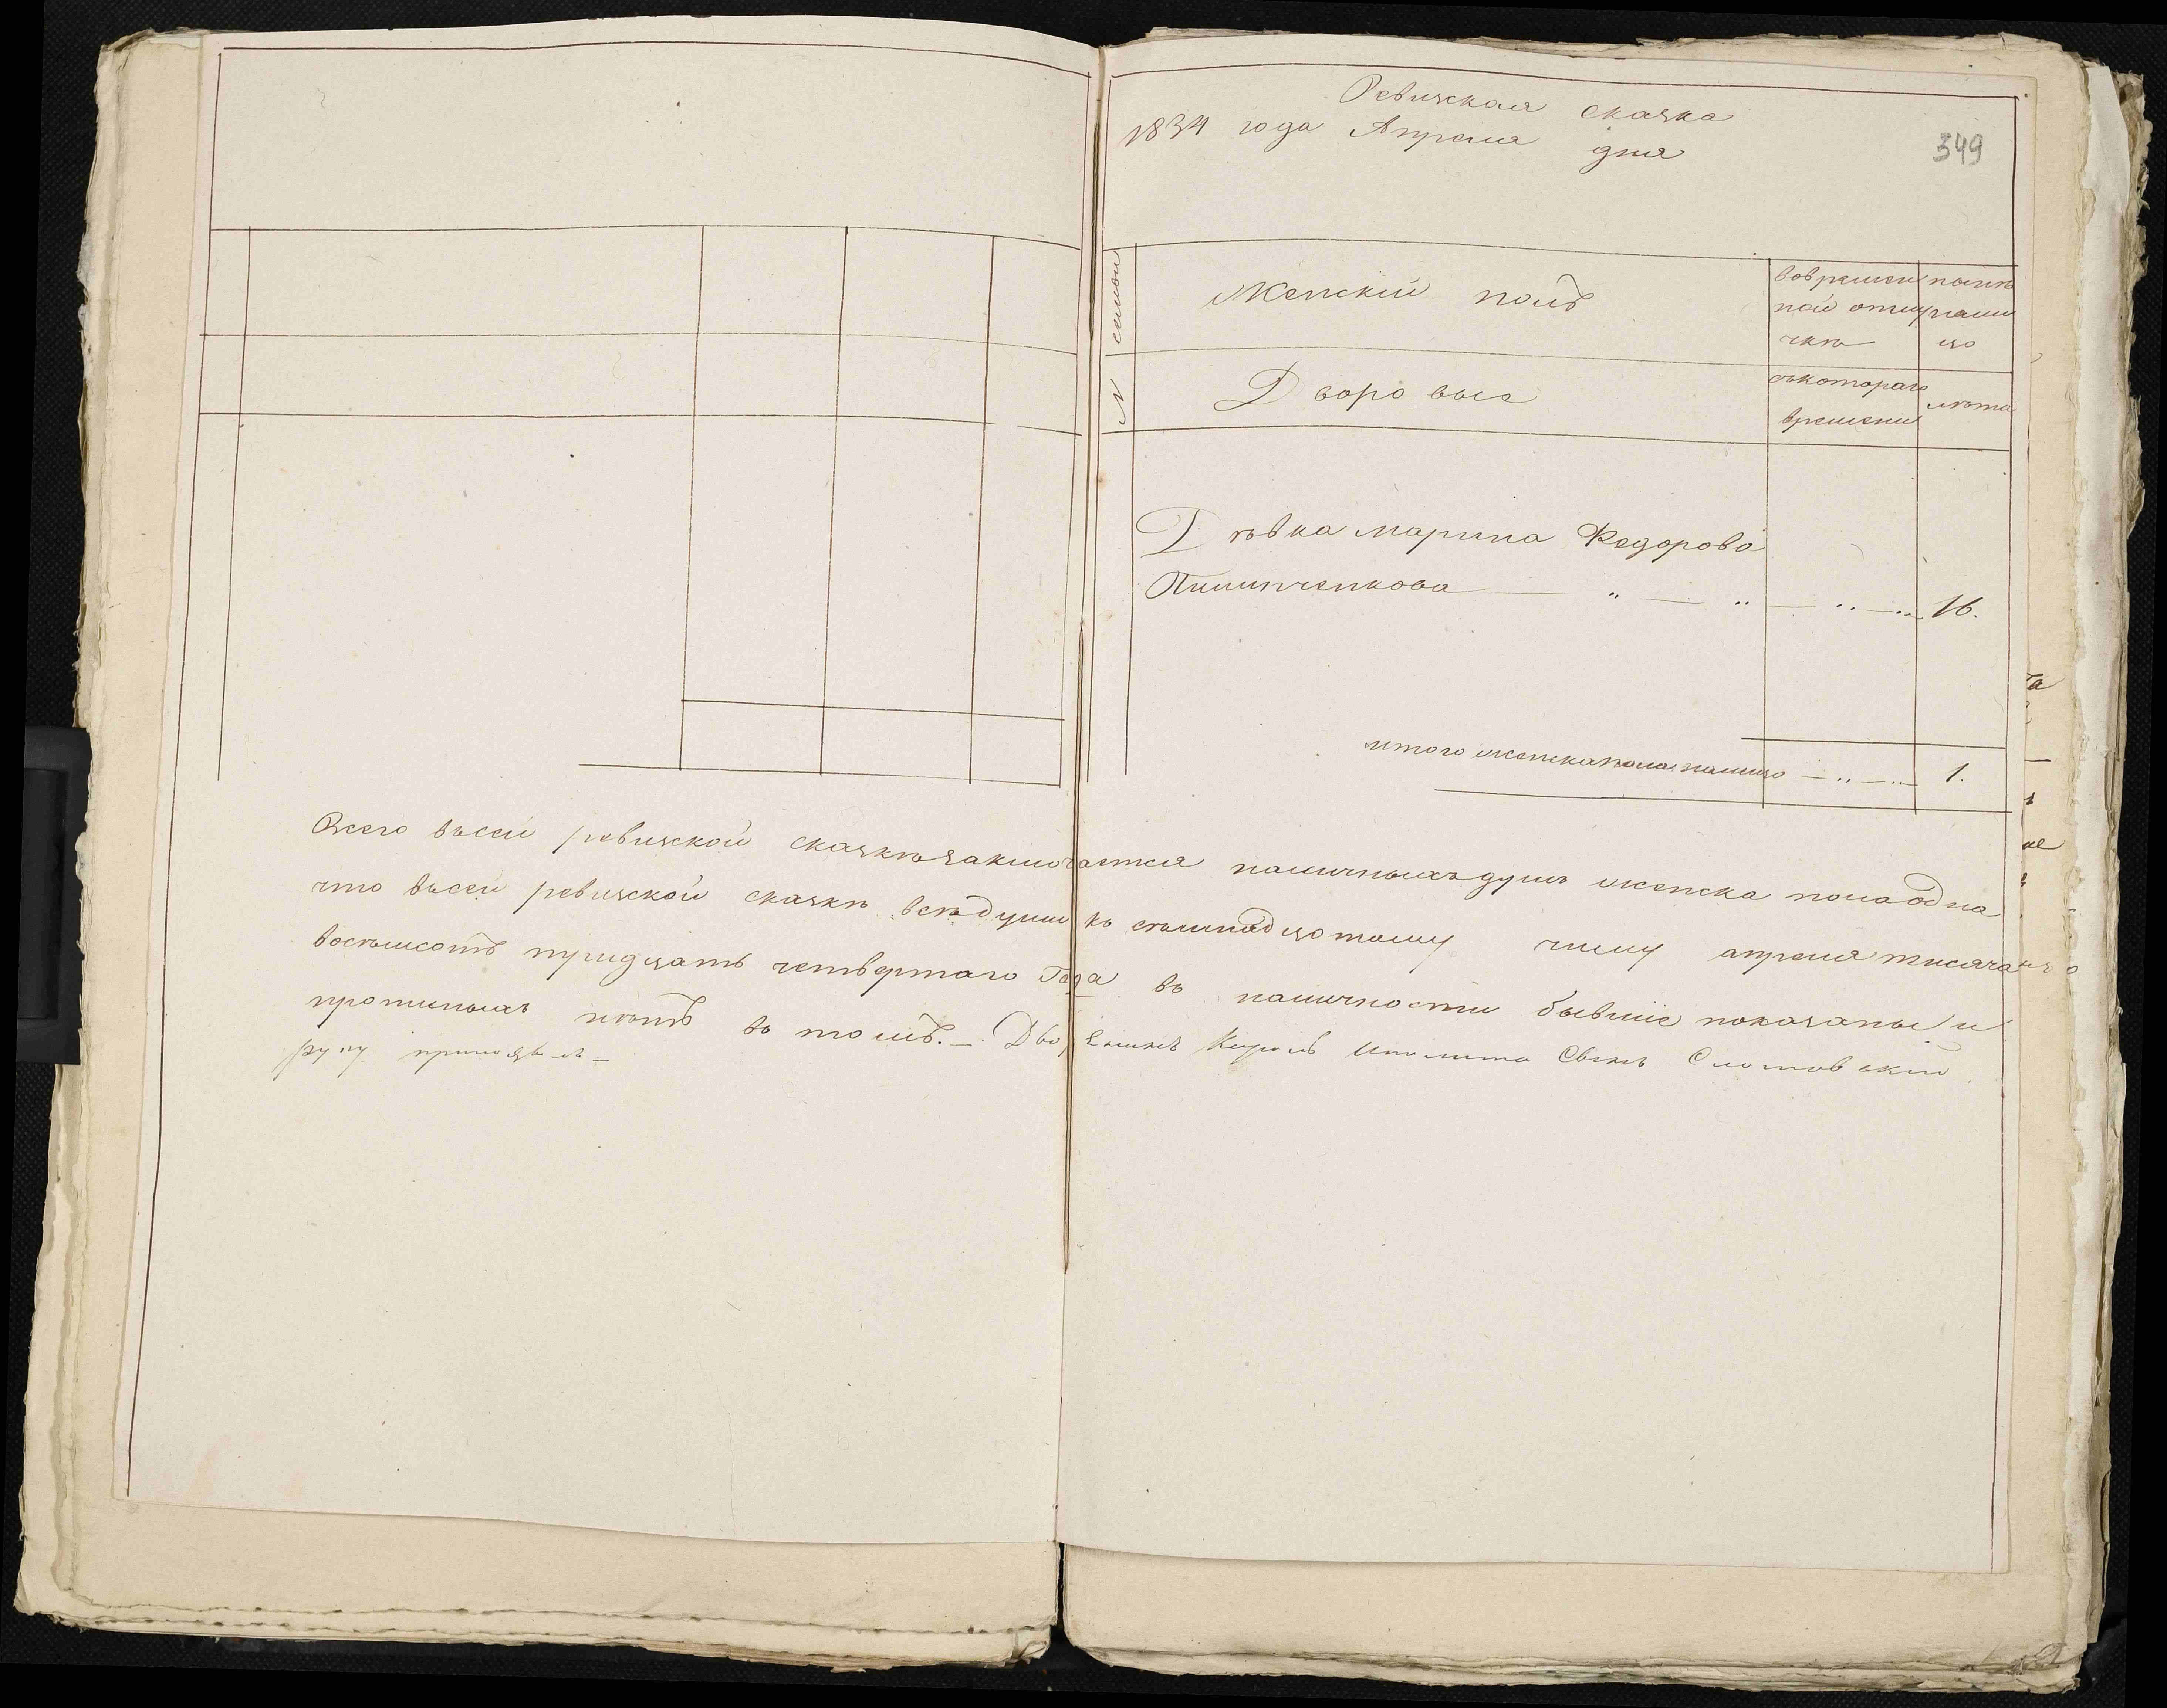 Ревизская сказка
1834 года Апреля дня
349
№ семьи
Женскій полъ
вовремен
ной отлу
чкѣ
нынѣ
нали
цо
Дворовые
съкотораго
времени
лѣта
Дѣвка марина Федорова
Пилипченкова — „ — „ — „ — „ 16.
итого женска пола налицо — „ — „ 1.
Всего высей ревизской сказкѣ заключается наличныхъ душъ женска пола одна
что высей ревизской сказкѣ всѣ души къ семнадцотому числу апреля тисяча
восѣмсотъ тридцать четвертаго Года въ наличности бывшіе показаны и
прописныхъ нѣтъ въ томъ. — Дворенинъ Сынъ
руку приложилъ —